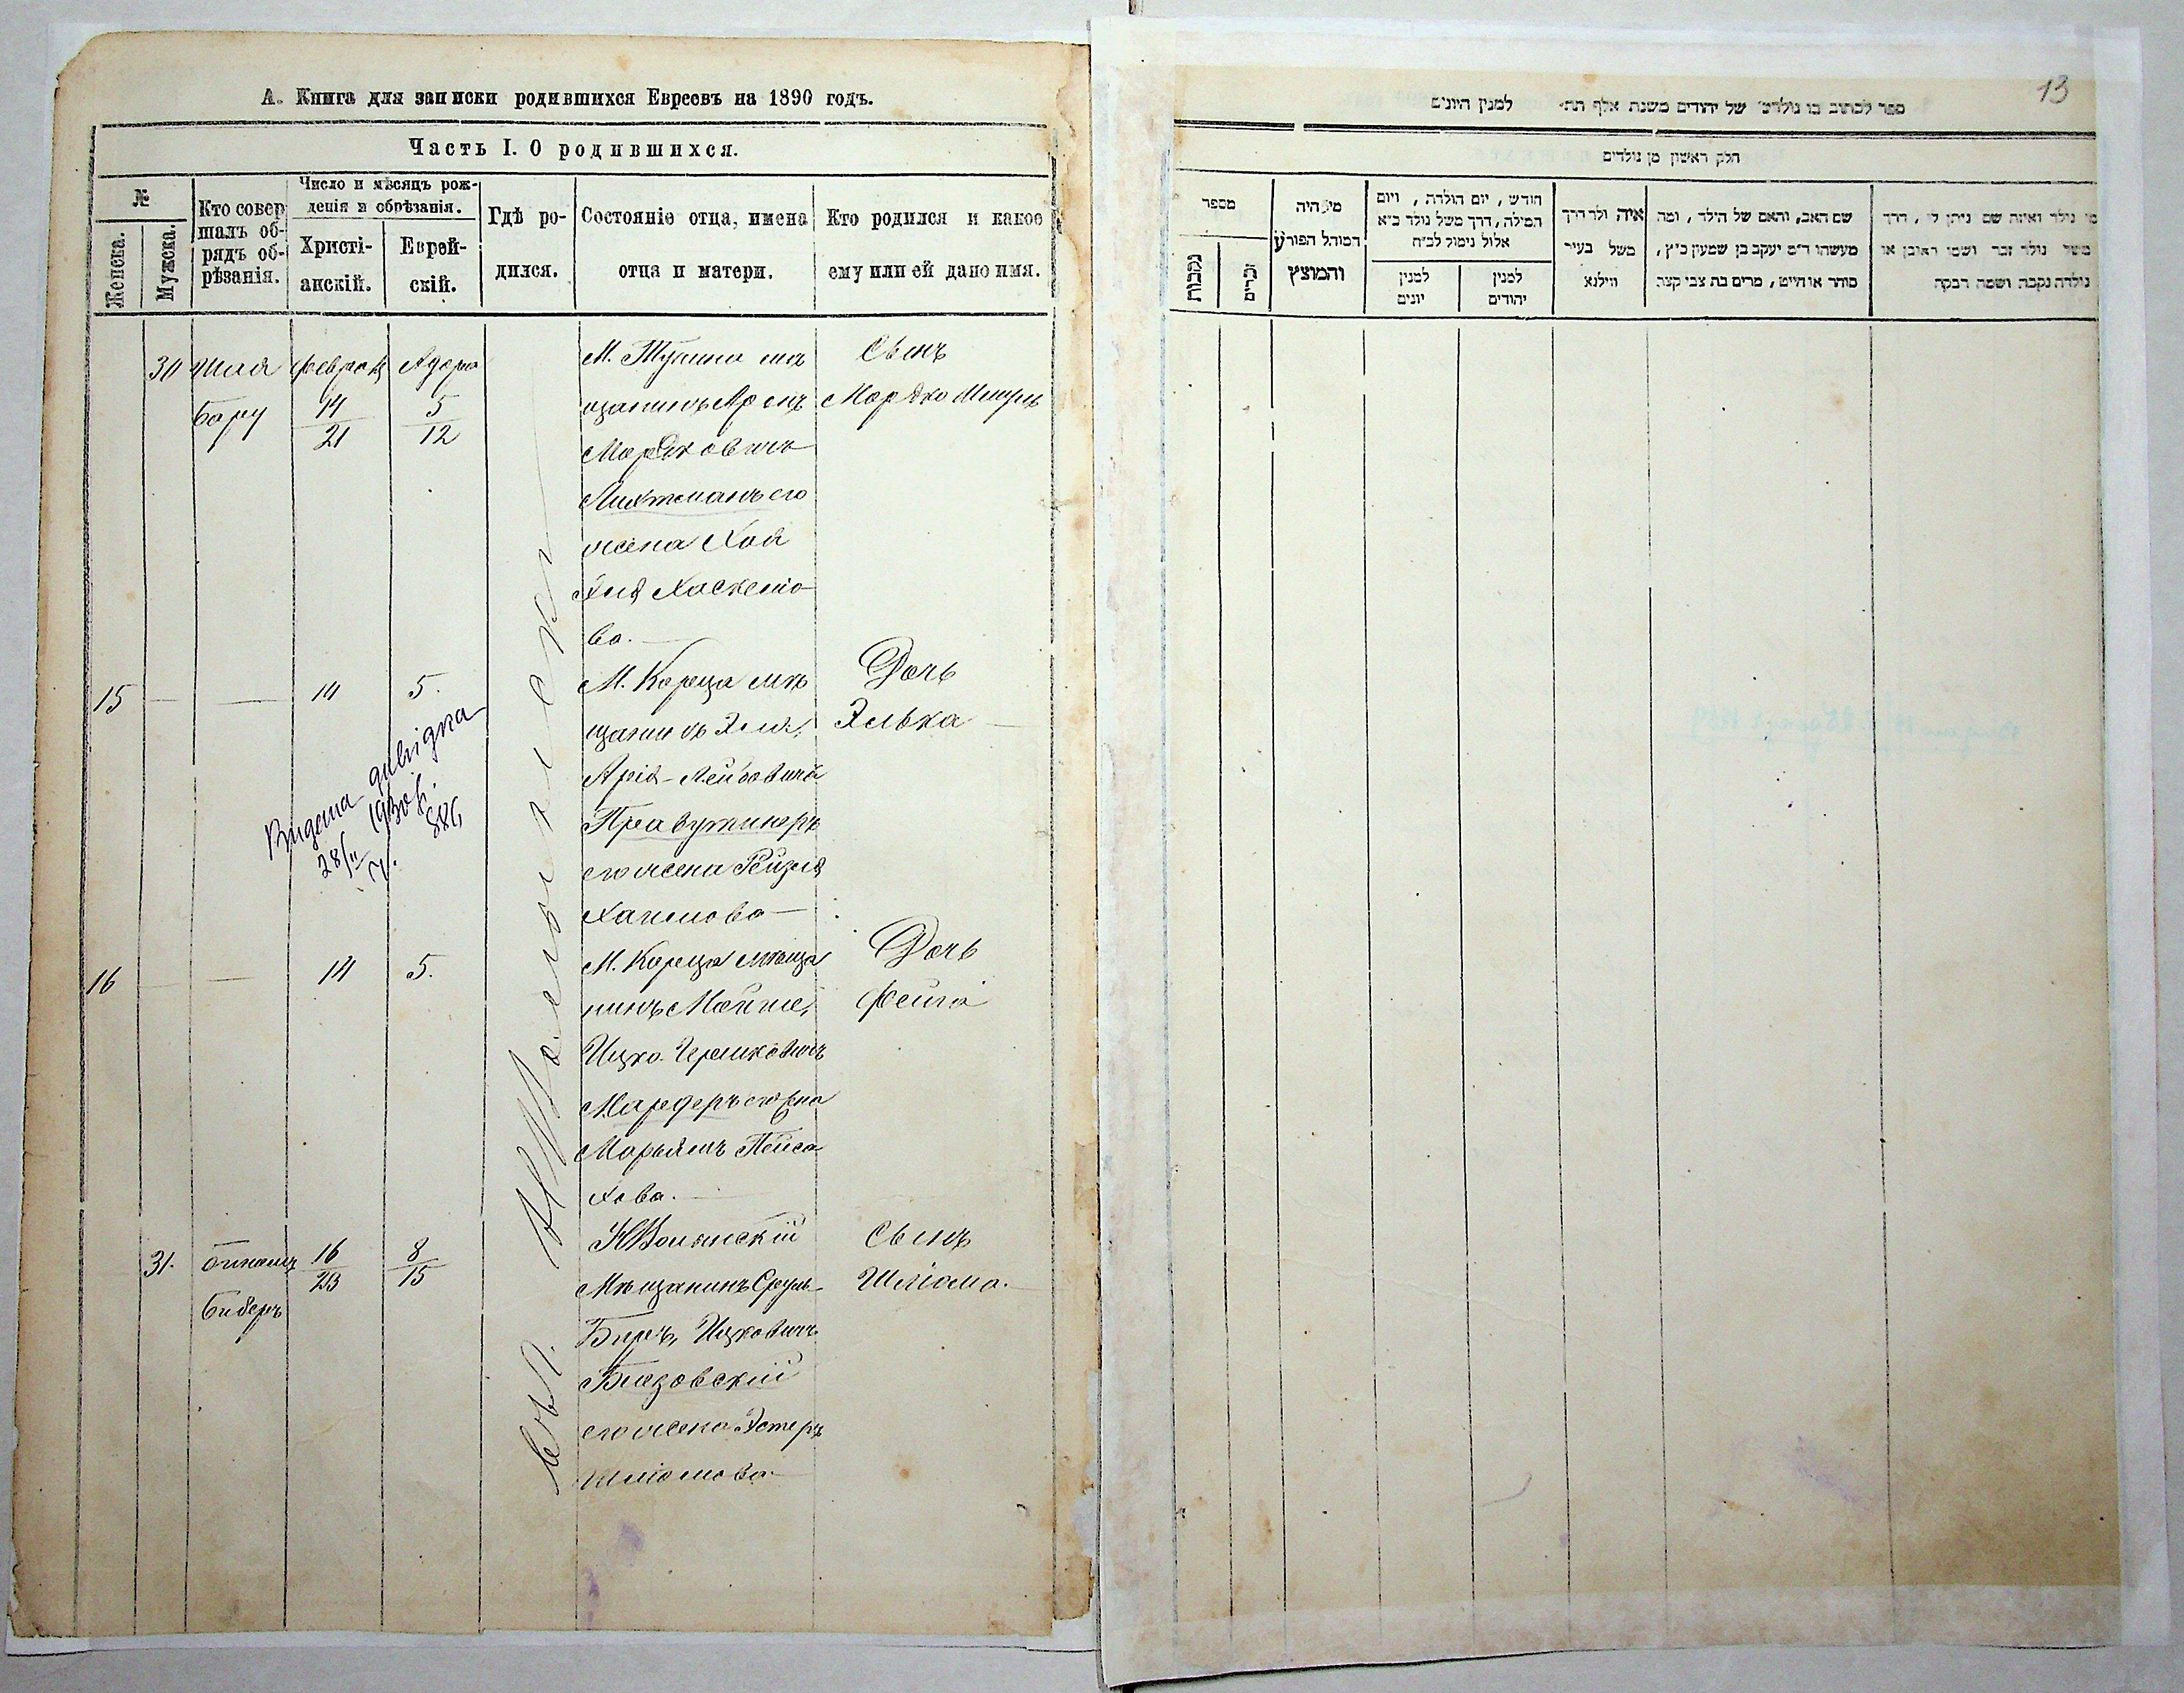 А. Книга для записки родившихся Евреевъ на 1890 годъ.
Часть I. О родившихся.
№
Женска.
Мужска.
Кто совер
шалъ об-
рядъ об-
рѣзанія.
Число и мѣсяцъ рож-
денія и обрѣзанія.
Христі-
анскій.
Еврей-
скій.
Гдѣ ро-
дился.
Состояніе отца, имена
отца и матери.
Кто родился и какое
ему или ей дано имя.
30 Шая Февраля Адора
Бару 14/21 5/12
М. Тучина мѣ
щанинъ Аронъ
Мордковичъ
Лихтманъ его
жена Хая
Хаскелю-
ва.
Сынъ
Мордко
15 — — 14 5.
М. Кореца мѣ
щанинъ
Арія-Лейбовичъ
Правутинеръ
его жена Рейзля
Хаимова
Дочь
Элька
28/II 1930
886
16 — — 14 5.
М. Кореца мѣща
нинъ Мойше,
Ицко Гершковичъ
Мардеръ его жена
Марьямъ Пейса
хова.
Дочь
Фейга
31. 16/23 8/15
Биберъ
НВолынскій
Мѣщанинъ Сруль
Беръ, Ицковичъ
его жена Эстеръ
Шліомова
Сынъ
Шліома.
13
ספר לכתוב בו נולדים של יהודים משנת אלף תת למנין היונים
חלק ראשון מן נולדים
מספר
נקבות
זכרים
מי היה
המוהל הפורע
והמוצץ
חודש, יום הולדה, ויום
המילה, דרך משל נולד כ״א
אלול נימול לכ״ח
למנין
יונים
למנין
יהודים
איה ולד דרך
משל בעיר
ווילנא
שם האב, והאם של הילד, ומה
מעשהו ד״מ יעקב בן שמעון כ״ץ,
סוחר או חייט, מרים בת צבי קצר
מי נולד ואיזה שם ניתן לו, דרך
משל נולד זכר ושמו ראובן או
נולדה נקבה ושמה רבקה